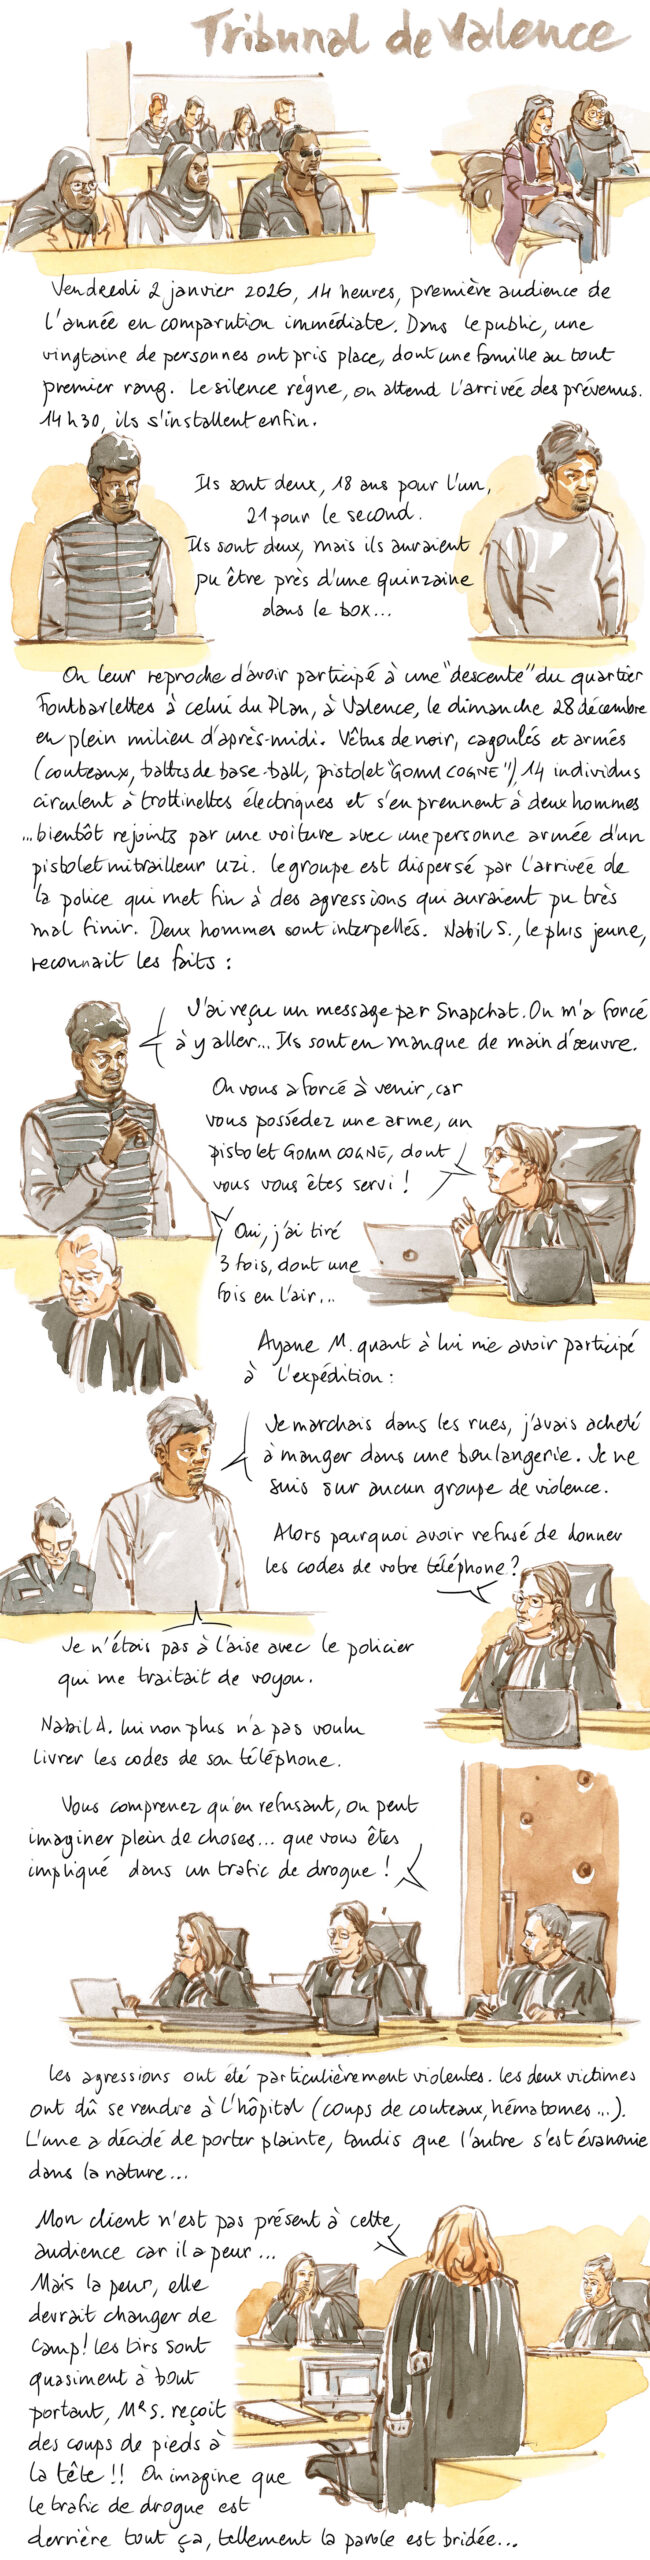 Tribunal de Valence
Vendredi 2 janvier 2026, 14 heures, première audience de
l'année en comparution immédiate. Dans le public, une
vingtaine de personnes ont pris place, dont une famille au tout
premier rang. Le silence règne, on attend l'arrivée des prévenus.
14h30, ils s'installent enfin.
Ils sont deux, 18 ans pour l'un,
21 pour le second.
Ils sont deux, mais ils auraient
pu être près d'une quinzaine
dans le box...
On leur reproche d'avoir participé à une "descente" du quartier
Fontbarlettes à celui du Plan, à Valence, le dimanche 28 décembre
en plein milieu d'après-midi. Vêtus de noir, cagoulés et armés
(couteaux, battes de base-ball, pistolet "GOMM COGNE"), 14 individus
circulent à trottinettes électriques et s'en prennent à deux hommes
...bientôt rejoints par une voiture avec une personne armée d'un
pistolet mitrailleur UZI. Le groupe est dispersé par l'arrivée de
la police qui met fin à des agressions qui auraient pu très
mal finir. Deux hommes sont interpellés. Nabil S., le plus jeune,
reconnait les faits :
J'ai reçu un message par Snapchat. On m'a forcé
à y aller... Ils sont en manque de main d'œuvre.
On vous a forcé à venir, car
vous possédez une arme, un
pistolet GOMM COGNE, dont
vous vous êtes servi !
Oui, j'ai tiré
3 fois, dont une
fois en l'air...
Ayane M. quant à lui nie avoir participé
à l'expédition :
Je marchais dans les rues, j'avais acheté
à manger dans une boulangerie. Je ne
suis sur aucun groupe de violence.
Alors pourquoi avoir refusé de donner
les codes de votre téléphone ?
Je n'étais pas à l'aise avec le policier
qui me traitait de voyou.
Nabil A. lui non plus n'a pas voulu
livrer les codes de son téléphone.
Vous comprenez qu'en refusant, on peut
imaginer plein de choses... que vous êtes
impliqué dans un trafic de drogue !
Les agressions ont été particulièrement violentes. Les deux victimes
ont dû se rendre à l'hôpital (coups de couteaux, hématomes...).
L'une a décidé de porter plainte, tandis que l'autre s'est évanouie
dans la nature...
Mon client n'est pas présent à cette
audience car il a peur...
Mais la peur, elle
devrait changer de
camp! Les tirs sont
quasiment à bout
portant, Mr S. reçoit
des coups de pieds à
la tête !! On imagine que
le trafic de drogue est
derrière tout ça, tellement la parole est bridée...